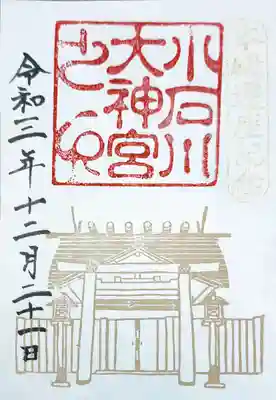 小石川
大神宮
之印
令和三年十二月二十一日